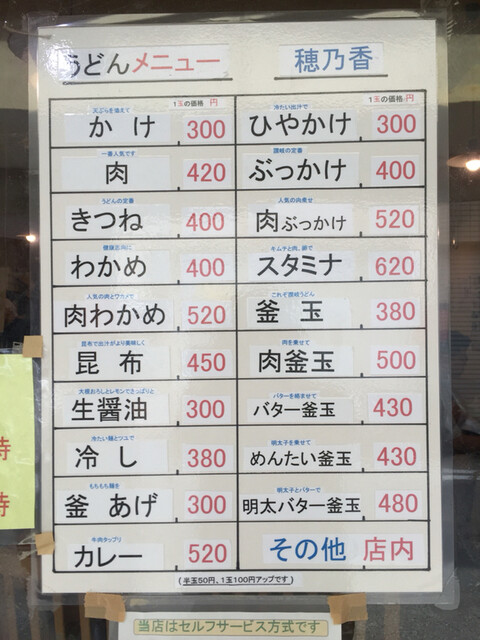 うどんメニュー
穂乃香
1玉の価格 円
天ぷらを添えて
かけ 300
一番人気です
肉 420
うどんの定番
きつね 400
健康志向に
わかめ 400
人気の肉とワカメで
肉わかめ 520
昆布で出汁がより美味しく
昆布 450
大根おろしとレモンでさっぱりと
生醤油 300
冷たい麺とツユで
冷し 380
もちもち麺を
釜あげ 300
牛肉タップリ
カレー 520
1玉の価格 円
冷たい出汁で
ひやかけ 300
讃岐の定番
ぶっかけ 400
人気の肉乗せ
肉ぶっかけ 520
キムチと肉、卵で
スタミナ 620
これぞ讃岐うどん
釜玉 380
肉を乗せて
肉釜玉 500
バターを絡ませて
バター釜玉 430
明太子を乗せて
めんたい釜玉 430
明太子とバターで
明太バター釜玉 480
その他 店内
(半玉50円、1玉100円アップです)
当店はセルフサービス方式です
待
待